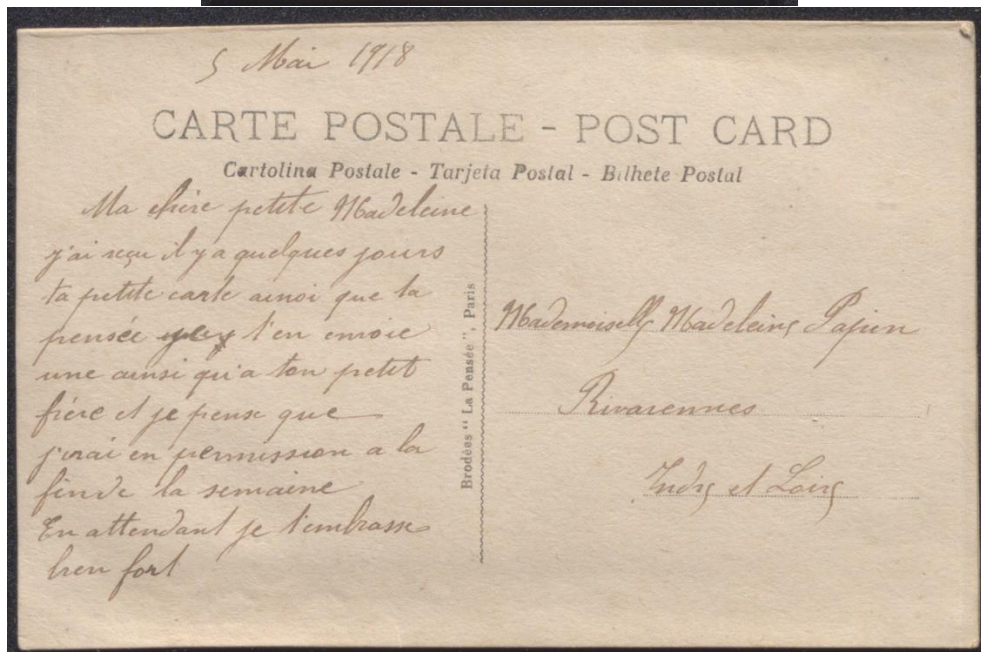 5 Mai 1918
CARTE POSTALE - POST CARD
Cartolina Postale - Tarjeta Postal - Bilhete Postal
Ma chère petite Madeleine
j'ai reçu il y a quelques jours
ta petite carte ainsi que ta
pensée t'en envoie
une ainsi qu'a ton petit
frère et je pense que
j'irai en permission a la
fin de la semaine
En attendant je t'embrasse
bien fort
Brodées "La Pensée", Paris
Mademoiselle Madeleine Papin
Rivarennes
Indre et Loire